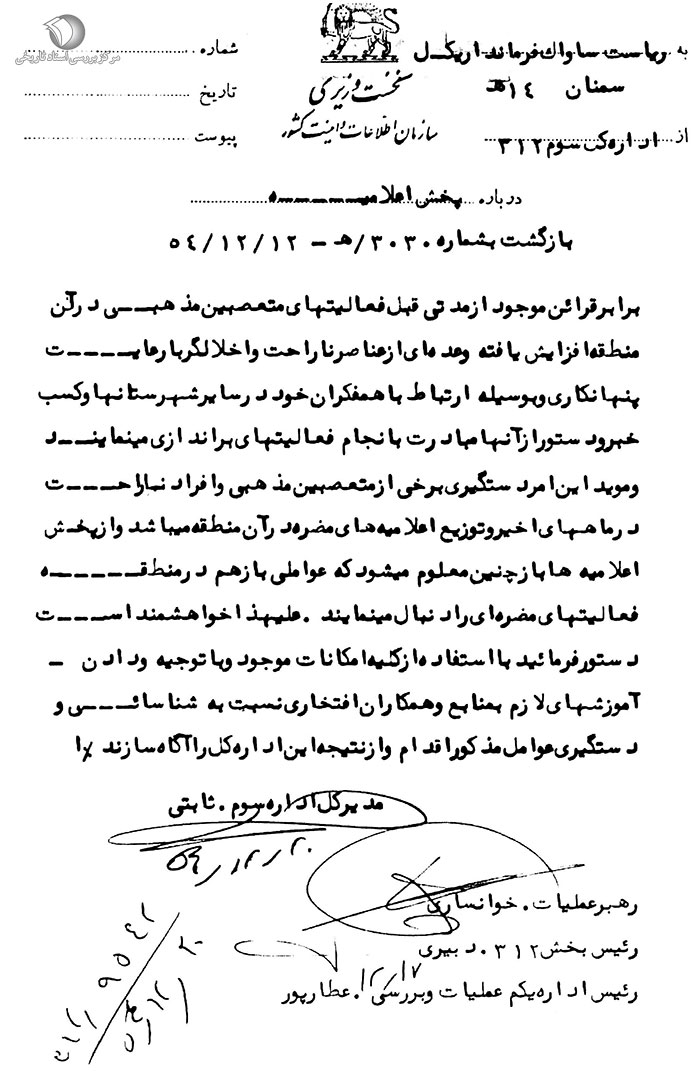 مرکز بررسی اسناد تاریخی
به ریاست ساواک فرمانداریکل
سمنان ۱۴هـ
از اداره کل سوم ۳۱۲
نخست وزیری
سازمان اطلاعات و امنیت کشور
شماره
تاریخ
پیوست
درباره پخش اعلامیه
بازگشت بشماره ۳۰۳۰/هـ - ۵۴/۱۲/۱۲
برابر قرائن موجود از مدتی قبل فعالیتهای متعصبین مذهبی در آن
منطقه افزایش یافته و عده ای از عناصر ناراحت و اخلالگر با رعایت
پنهانکاری و بوسیله ارتباط با همفکران خود در سایر شهرستانها و کسب
خبر و دستور از آنها مبادرت بانجام فعالیتهای براندازی مینمایند
و موید این امر دستگیری برخی از متعصبین مذهبی و افراد ناراحت
در ماههای اخیر و توزیع اعلامیه های مضره در آن منطقه میباشد و از پخش
اعلامیه ها باز چنین معلوم میشود که عواملی باز هم در منطقه
فعالیتهای مضره ای را دنبال مینمایند . علیهذا خواهشمند است
دستور فرمائید با استفاده از کلیه امکانات موجود و با توجیه و دادن -
آموزشهای لازم بمنابع و همکاران افتخاری نسبت به شناسائی و
دستگیری عوامل مذکور اقدام و از نتیجه این اداره کل را آگاه سازند
مدیر کل اداره سوم . ثابتی
۵۴/۱۲/۲۰
رهبر عملیات . خوانساری
رئیس بخش ۳۱۲ . دبیری
رئیس اداره یکم عملیات و بررسی . عطارپور
۱۲/۱۷